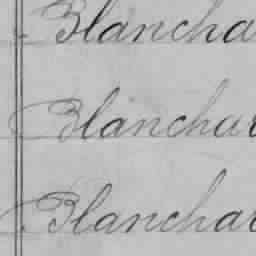 Blancha
Blanchar
Blanchar